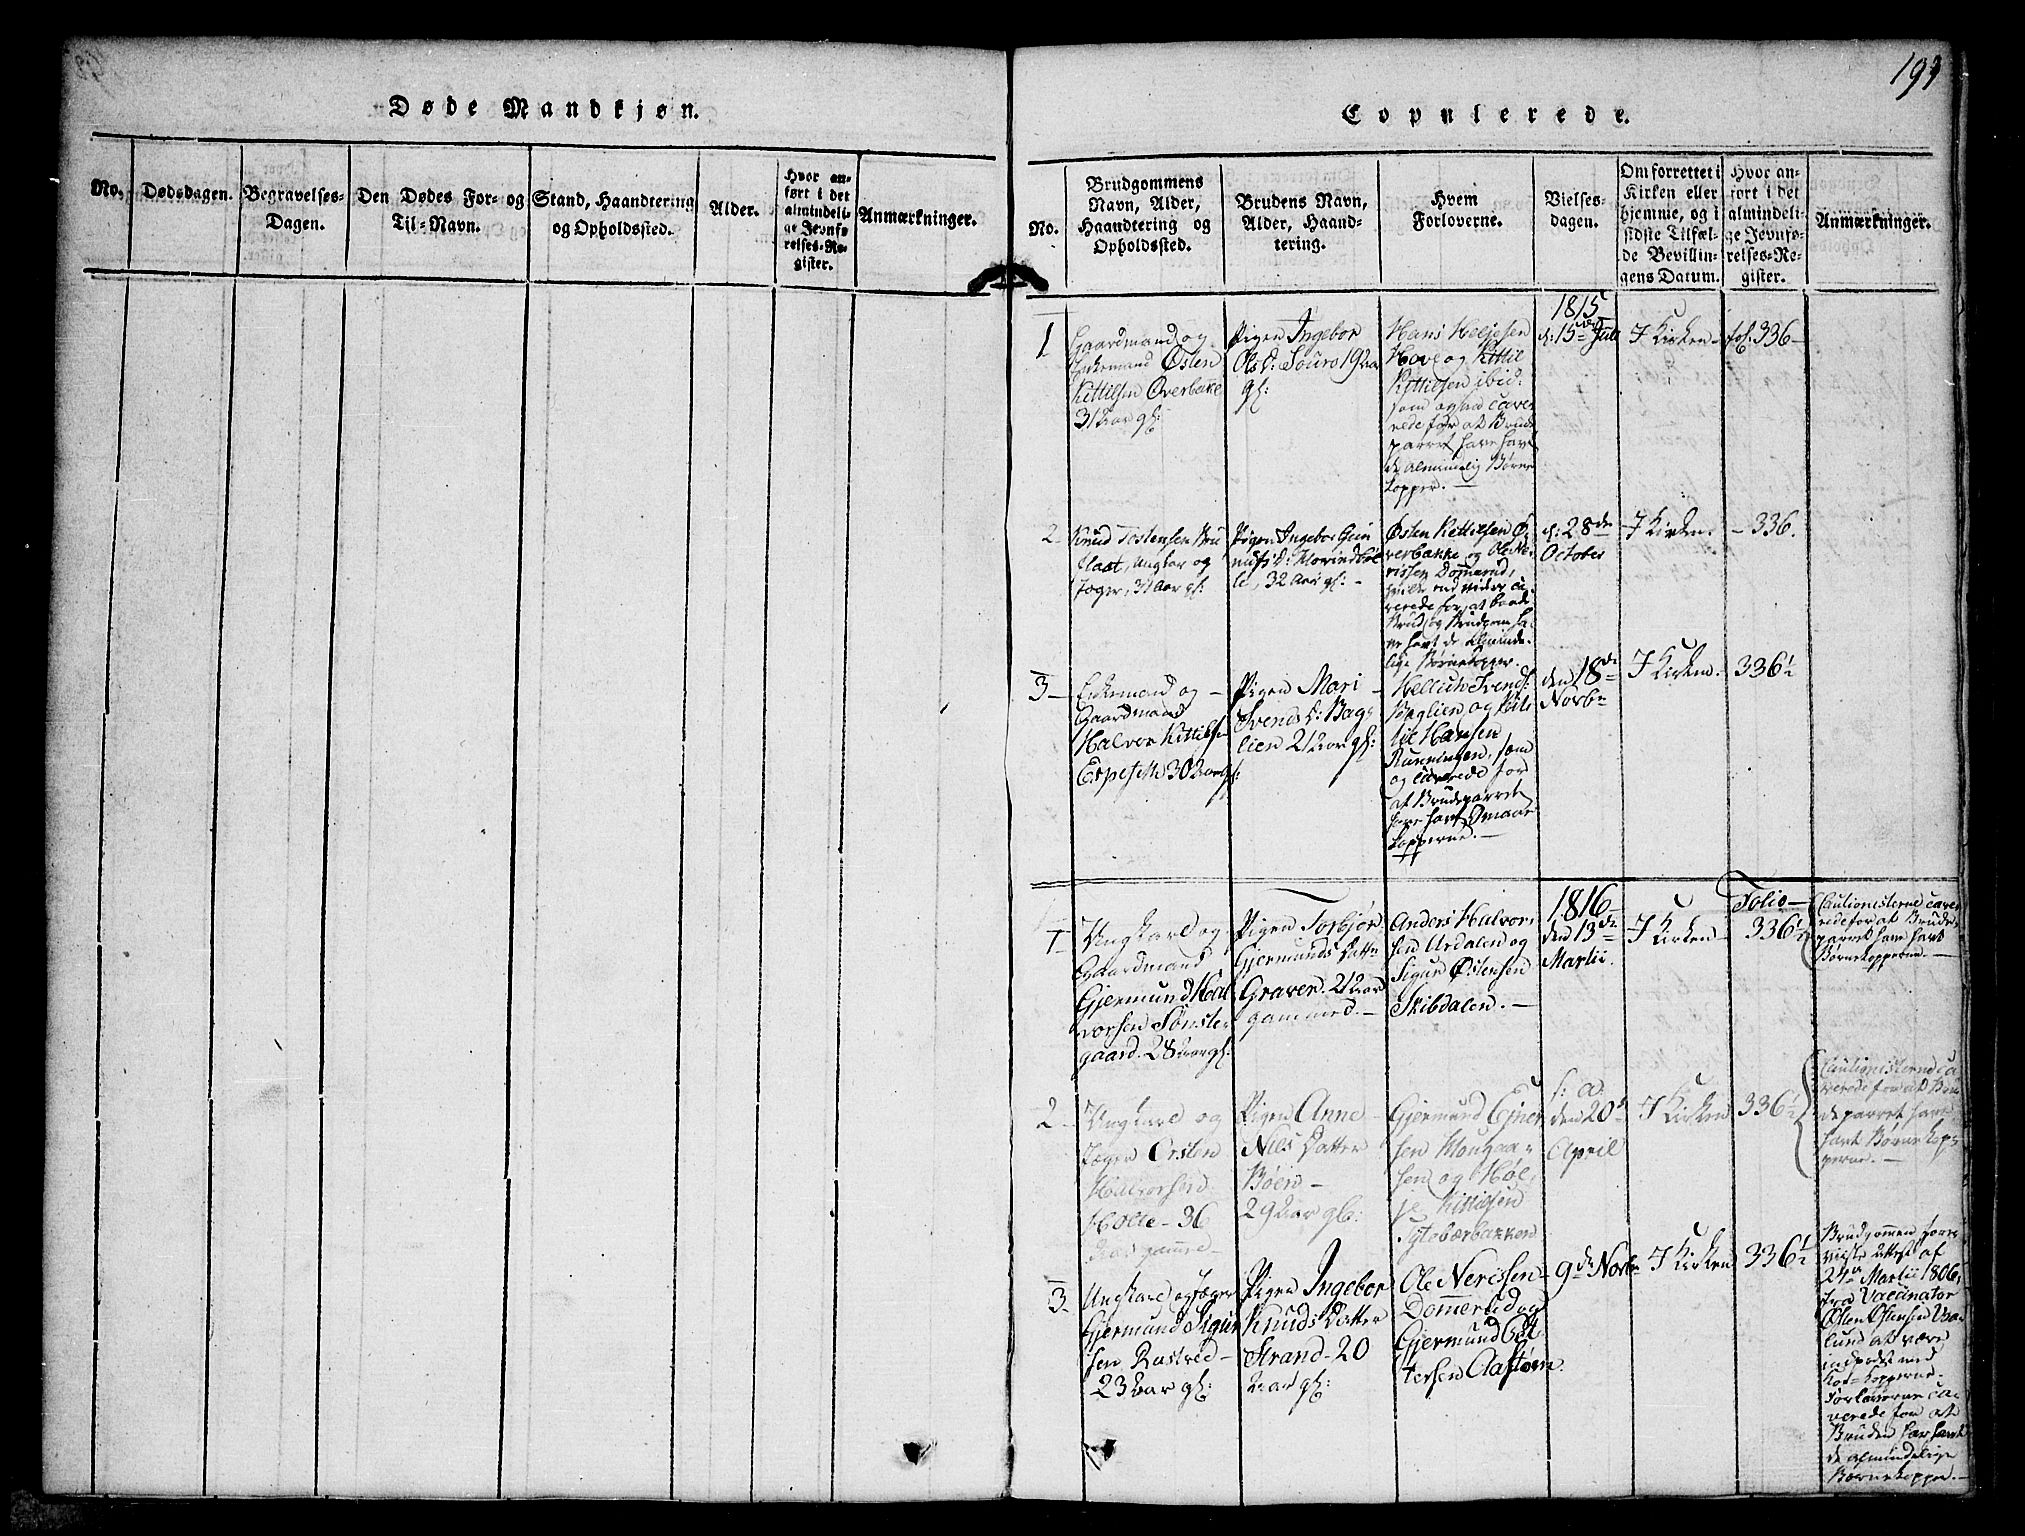 Døde Mandkjøn.
No.
Dødsdagen.
Begravelses-
Dagen.
Den Dødes For- og
Til-Navn.
Stand, Haandtering
og Opholdssted.
Alder.
Hvor an-
ført i det
almindeli-
ge Jevnfø-
relses-Re-
gister.
Anmærkninger.
193
Copulerede.
No.
Brudgommens
Navn, Alder,
Haandtering og
Opholdssted.
Brudens Navn,
Alder, Haand-
tering.
Hvem
Forloverne.
Vielses-
dagen.
Om forrettet i
Kirken eller
hjemme, og i
sidste Tilfæl-
de Bevillin-
gens Datum.
Hvor an-
ført i det
almindeli-
ge Jevnfø-
relses-Re-
gister.
Anmærkninger.
1
Gaardmand og
Enkemand Østen
Kittilsen Øverbakke
31 Aar gl:
Pigen Ingebor
Ols D: 19 Aar
gl:
Hans Heljesen
Hove og Kittil
Kittilsen ibid:
som ogsaa caver
rede for at Brude
parret have havt
de almindelig Børne
kopper. —
1815
d: 15de Juli
I Kirken –
fol. 336 –
2
Knud Tostensen
flaat, Ungkar og
Jæger, 31 Aar gl:
Pigen Ingebor Gun
nufs D:
32 Aar gl: –
Østen Kittilsen Ø
verbakke og Ole Ne-
rissen Dommerud,
ca-
verede for, at baade
Brud og Brudgom ha-
ve havt de alminde-
lige Børnekopper.
d: 28de
October
I Kirken.
– 336.
3 –
Enkemand og –
Gaardmand
Halvor Kittilsen
Espeseth 30 Aar gl:
Pigen Mari –
Svends D: Bag-
lien 21 Aar gl:
Svends:
Baglien og Kit-
til Hansen
Runningen, som
og caverede for
at Brudeparret
have havt
kopperne. —
den 18de
Novbr
I Kirken.
336½
1
Ungkarl og
Gaardmand
Gjermund Hal
vorsen Sønste-
gaard. 28 Aar gl:
Pigen Torbjør
Gjermunds Datter
Graver. 21 Aar
gammel. –
Anders Halvor-
sen Urdalen og
Sigur Østensen
Skibdalen. –
1816
den 13de
Martii.
I Kirken –
Folio –
336½
Cautionisterne cave
rede for at Brude
parret have havt
Børnekopperne. —
2 –
Ungkarl og
Jæger Østen
Halvorsen
Holte – 36
Aar gammel –
Pigen Anne –
Niels Datter
Bøen –
29 Aar gl:
Gjermund Ejner
sen Mougaa-
sen og Høl-
je Kittilsen
Tytebærbakken
s: a
den 20de
April
I Kirken
336½
Cautionisterne ca
verede for at Bru
deparret have
havt Børnekop-
perne. –
3 –
Ungkarl og Jæger
Gjermund Sigur
sen Rustved –
23 Aar gl:
Pigen Ingebor
Knuds Datter
Strand – 20
Aar gl:
Ole Nerissen –
Dommerud og
Gjermund Git
tersen
9de Novbr
I Kirken
336½
Brudgommen fore
viste Attest af
24de Martii 1806,
fra Vaccinator
Østen Østensen
lund at være
indpodet med
Koe-kopperne.
Forloverne ca-
verede for at
Bruden har havt
de almindelige
Børnekopper. –